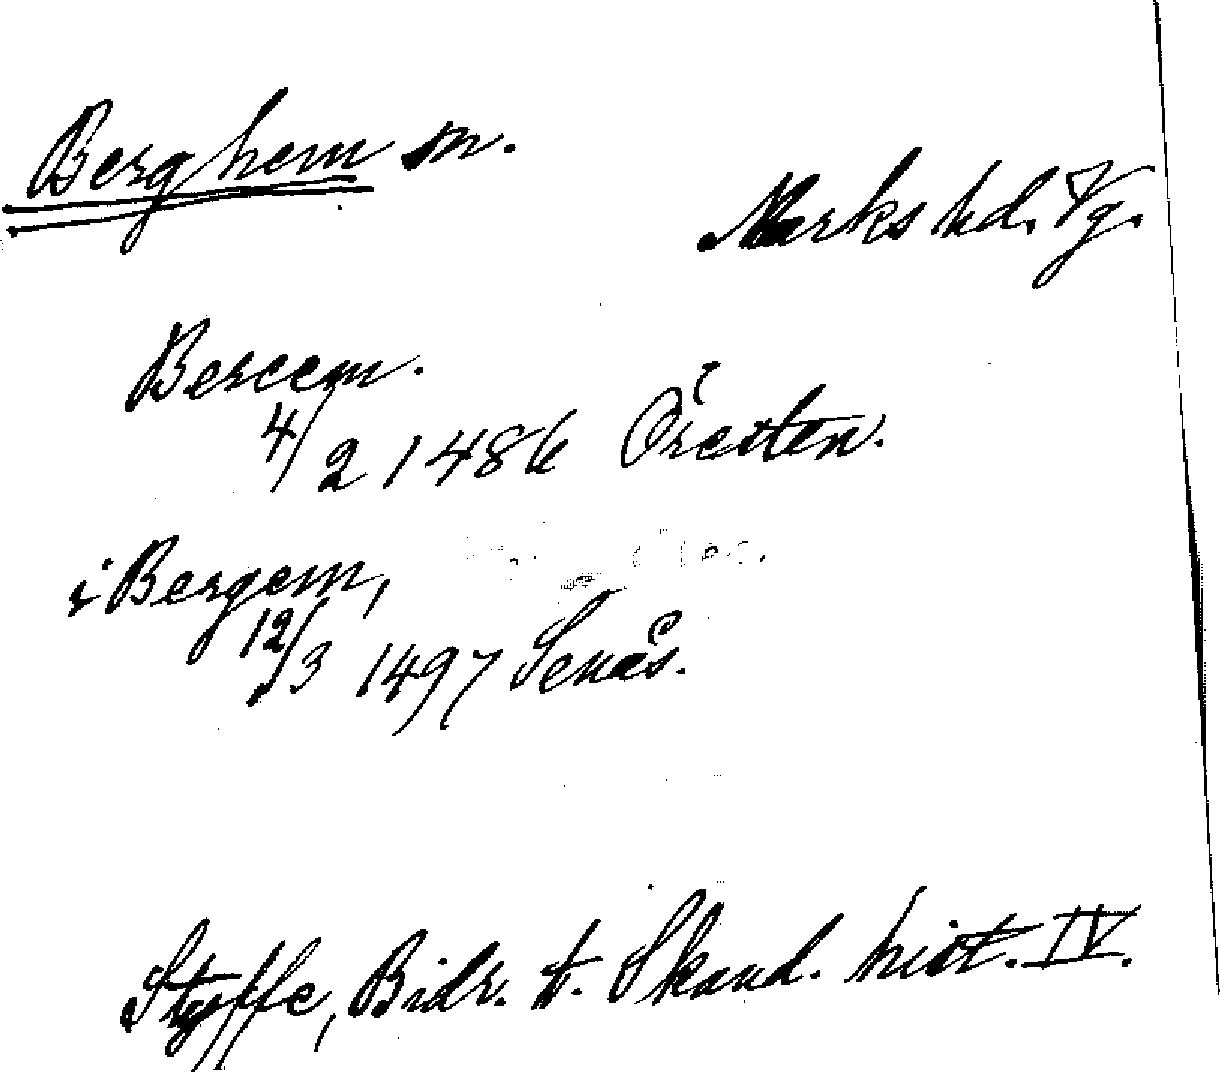 Berghem sn.
Marks hd. Vg.
Bercem.
4/2 1486 Öresten.
i Bergem,
12/3 1497 Senäs.
Styffe, Bidr. t. Skand. hist. IV.